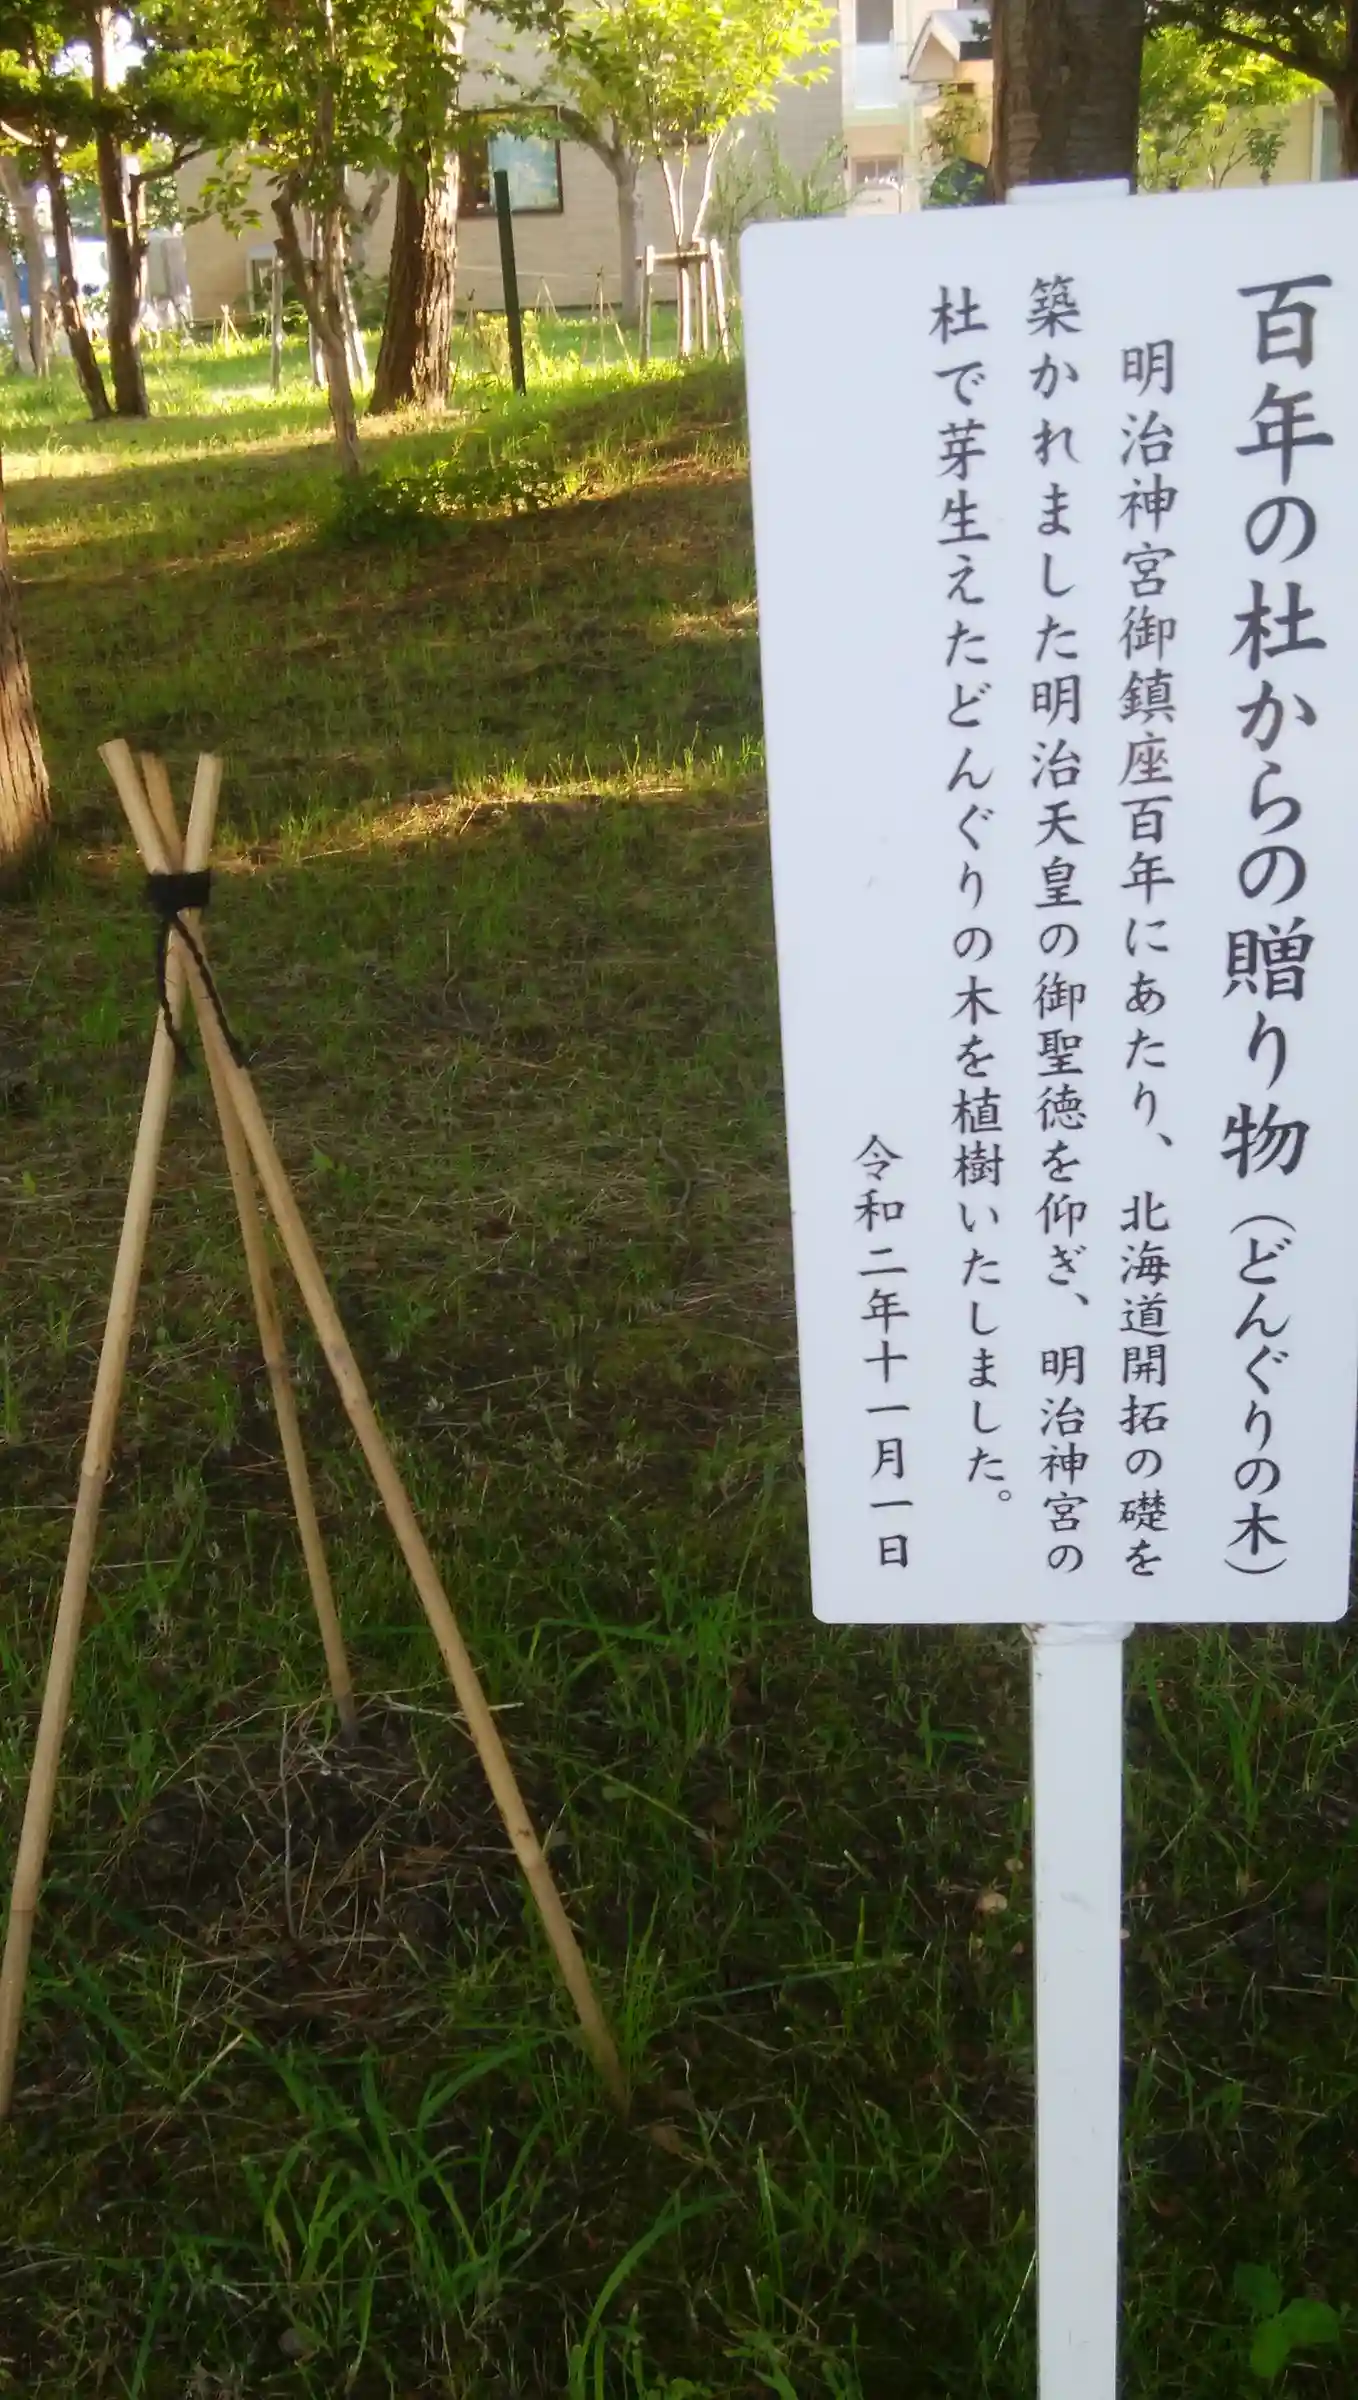 百年の杜からの贈り物（どんぐりの木）
明治神宮御鎮座百年にあたり、北海道開拓の礎を
築かれました明治天皇の御聖徳を仰ぎ、明治神宮の
杜で芽生えたどんぐりの木を植樹いたしました。
令和二年十一月一日